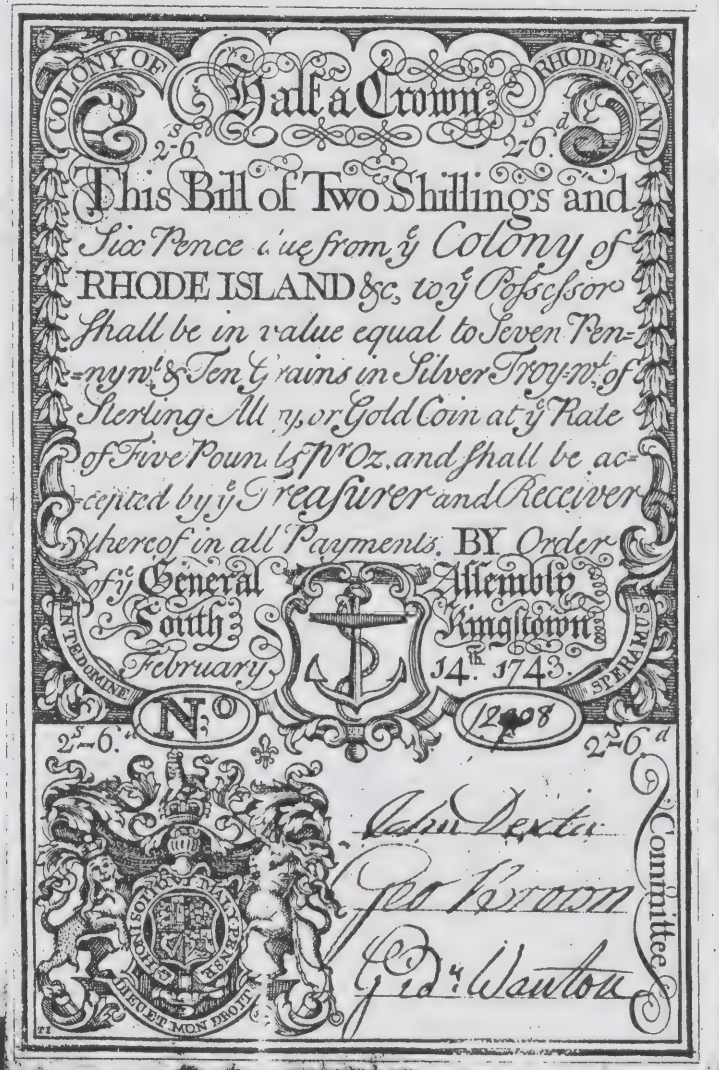 COLONY OF RHODE ISLAND
Half a Crown
2s-6 2s-6.d
This Bill of Two Shillings and
Six Pence due from ye Colony of
RHODE ISLAND &c, to ye Possessor
shall be in value equal to Seven Pen=
=nywt & Ten Grains in Silver Troy=wt, of
Sterling Alloy, or Gold Coin at ye Rate
of Five Pounds Pr Oz. and shall be ac=
=cepted by ye Treasurer and Receiver
thereof in all Payments. BY Order
of ye General Assembly
South Kingstown
February 14th. 1743.
IN TE DOMINE SPERAMUS
No
2s=6.d 2s=6.d
John Dexter
Geo Brown
Gidn Wanton
Committee
HONI SOIT QUI MAL Y PENSE
DIEU ET MON DROIT
TI